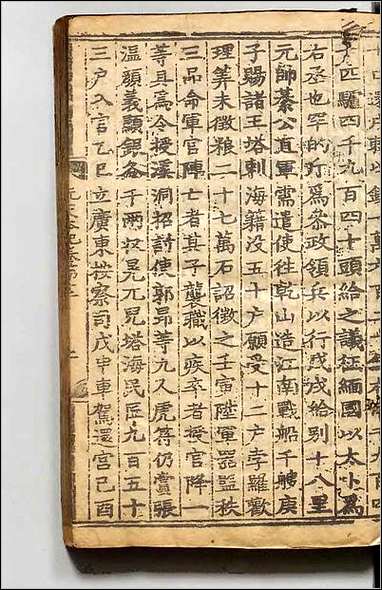 匹驢四千九百四十頭給之議征緬國以太卜為
右丞也罕的斤為叅政領兵以行戊戌給別十八里
元帥綦公直軍需遣使徃乾山造江南戰船千艘庚
子賜諸王塔剌海籍没五十户願受十二户孛羅歡
理筭未徵粮二十七萬石詔徵之壬寅陞軍器監秩
三品命軍官陣亡者其子襲職以疾卒者授官降一
等且為令授溪洞招討使郭昂等九人虎符仍賞張
温顔義顯銀各千兩收晃兀兒塔海民匠九百五十
三户入官乙巳立廣東按察司戊申車駕還宮己酉